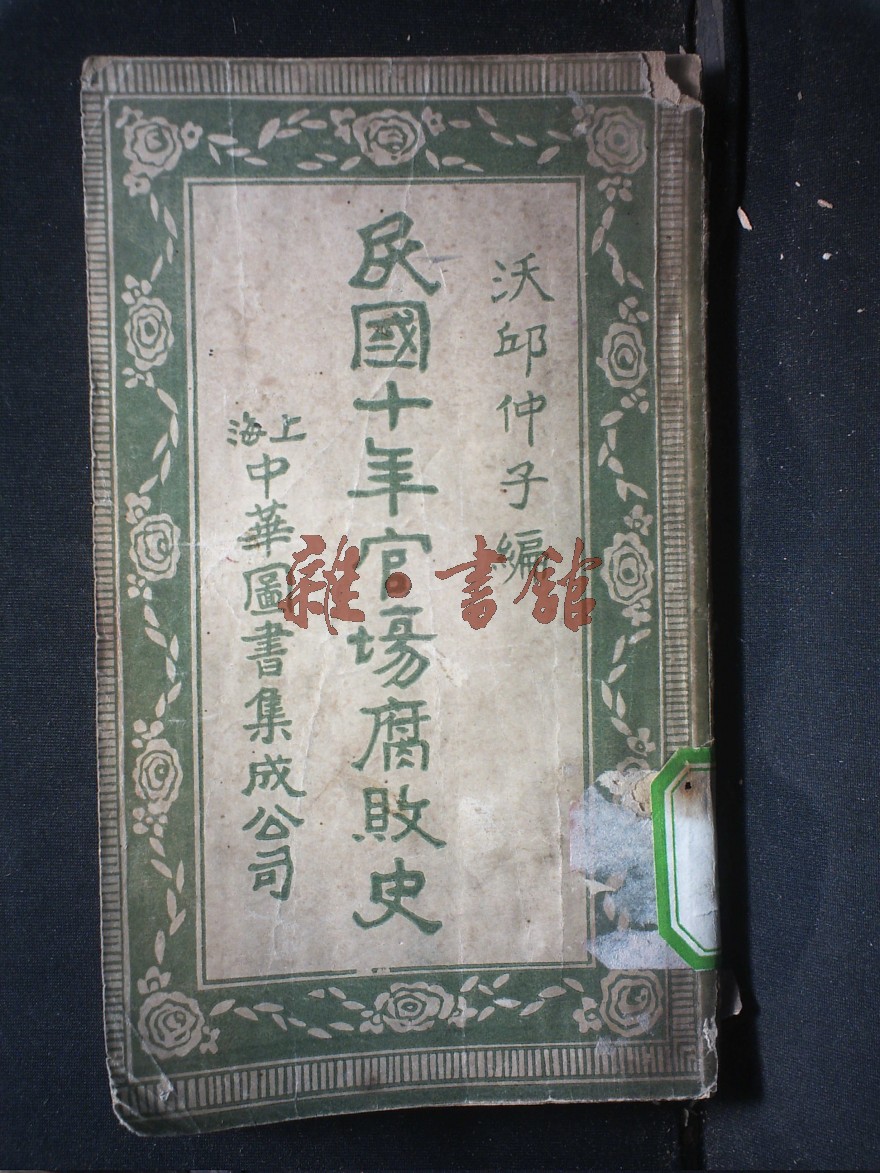 沃邱仲子編
民國十年官場腐敗史
上海
中華圖書集成公司
雜·書館